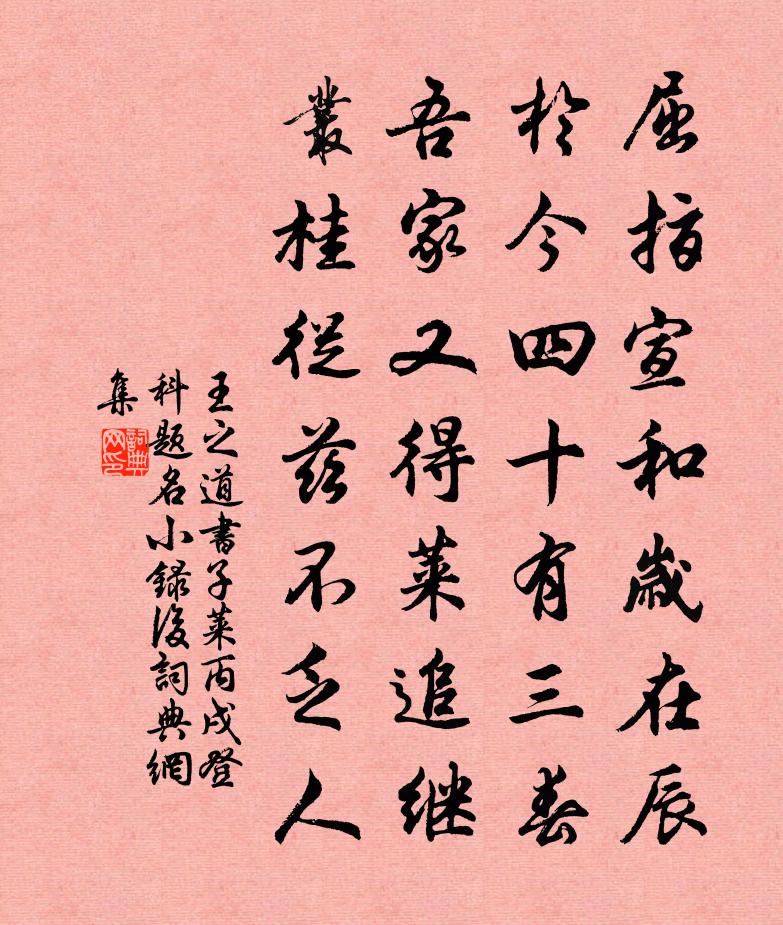 屈指宣和歲在辰
於今四十有三春
吾家又得萊追继
叢桂從兹不乏人
王之道書子萊丙戌登
科题名小録後詞典網
集
詞典
网印